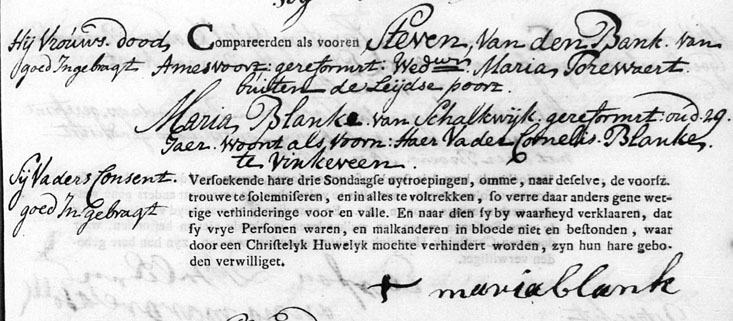 Hij Vroúws. dood
goed Ingebragt
Compareerden als vooren Steven, Van den Bank. van
Amesvoort gereformrt: Wedwr. Maria
búiten de Leijdse poort.
Maria Blanke van Schalkwijk. gereformrt: oud. 29.
Jaer. Woont als Voorn: Haer Vader Cornelis. Blanke,
te Vinkeveen.
Sij Vaders Consent.
goed Ingebragt
Versoekende hare drie Sondaagse uytroepingen, omme, naar deselve, de voorsz.
trouwe te solemniseren, en in alles te voltrekken, so verre daar anders gene wet-
tige verhinderinge voor en valle. En naar dien sy by waarheyd verklaaren, dat
sy vrye Personen waren, en malkanderen in bloede niet en bestonden, waar
door een Christelyk Huwelyk mochte verhindert worden, zyn hun hare gebo-
den verwilliget.
maria blank